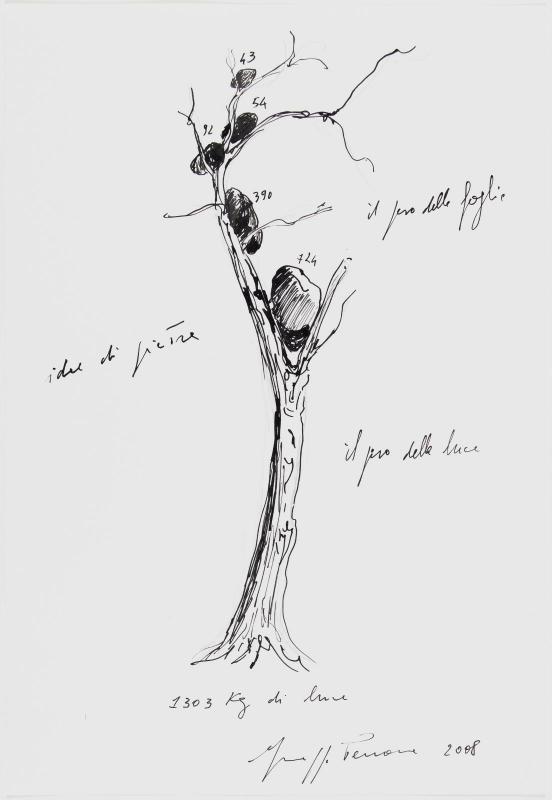 43
54
92
390
il peso delle foglie
724
idee di pietra
il peso della luce
1303 Kg di luce
Giuseppe Penone 2008